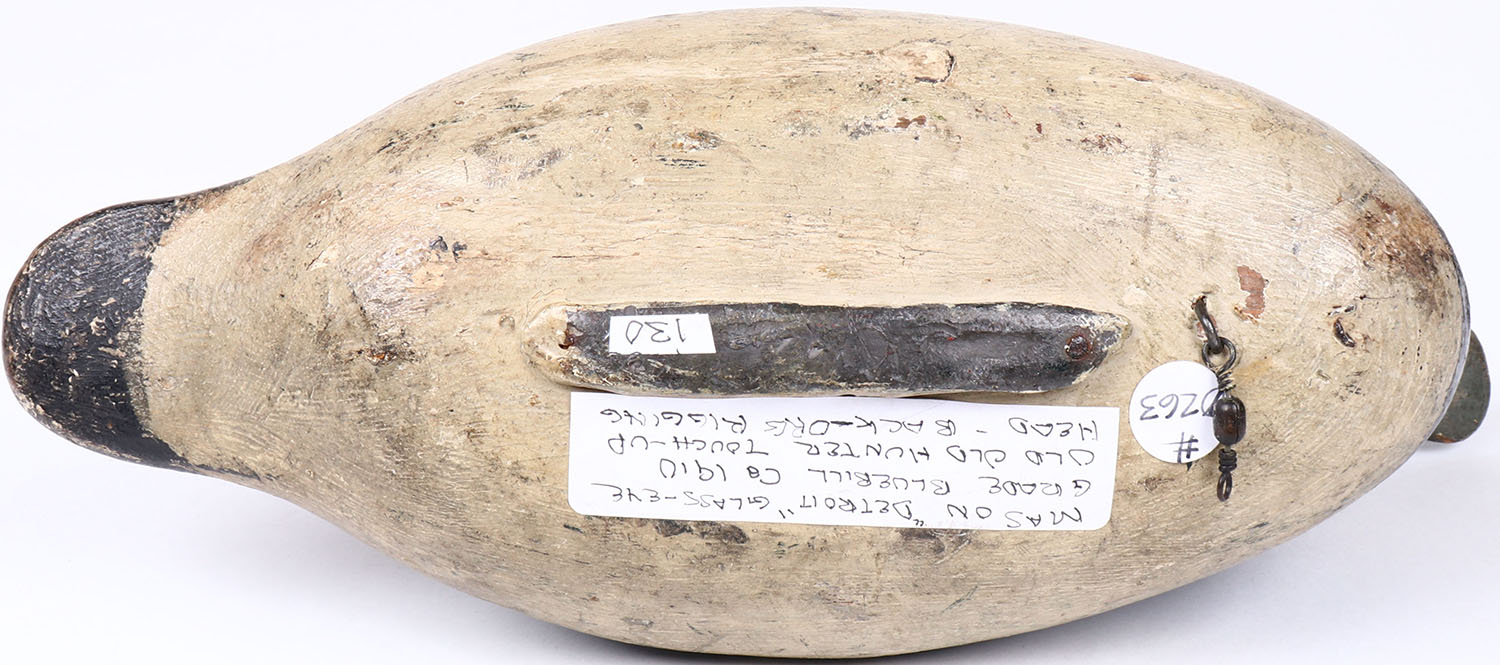 MASON "DETROIT" GLASS-EYE
GRADE BLUEBILL CA 1910
OLD OLD HUNTER TOUCH-UP
HEAD - BACK-ORG RIGGING
130
#